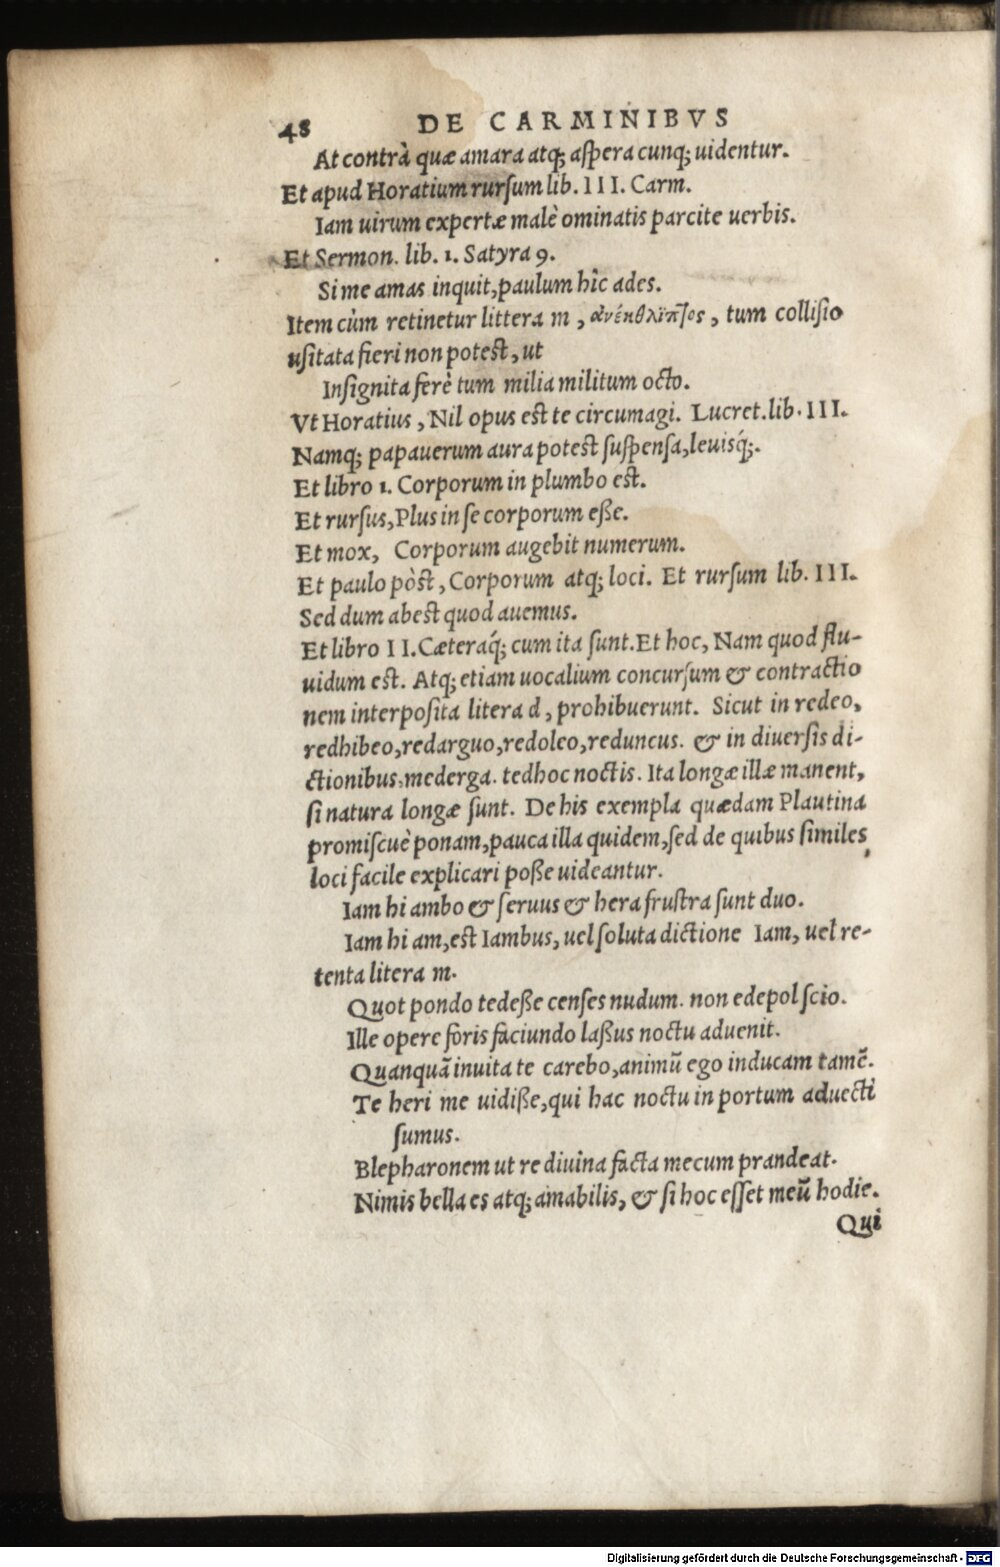 48 DE CARMINIBVS
At contrà quæ amara atq; aſpera cunq; uidentur.
Et apud Horatium rurſum lib. III. Carm.
Iam uirum expertæ malè ominatis parcite uerbis.
Et Sermon. lib. 1. Satyra 9.
Si me amas inquit, paulum hîc ades.
Item cùm retinetur littera m, , tum colliſio
uſitata fieri non potest, ut
Inſignita ferè tum milia militum octo.
Vt Horatius, Nil opus est te circumagi. Lucret. lib. III.
Namq; papauerum aura potest ſuſpenſa, leuisq́;.
Et libro 1. Corporum in plumbo est.
Et rurſus, Plus in ſe corporum eße.
Et mox, Corporum augebit numerum.
Et paulo pòst, Corporum atq; loci. Et rurſum lib. III.
Sed dum abest quod auemus.
Et libro II. Cæteraq́; cum ita ſunt. Et hoc, Nam quod flu-
uidum est. Atq; etiam uocalium concurſum & contractio
nem interpoſita litera d, prohibuerunt. Sicut in redeo,
redhibeo, redarguo, redoleo, reduncus. & in diuerſis di-
ctionibus, mederga. tedhoc noctis. Ita longæ illæ manent,
ſi natura longæ ſunt. De his exempla quædam Plautina
promiſcuè ponam, pauca illa quidem, ſed de quibus ſimiles
loci facile explicari poße uideantur.
Iam hi ambo & ſeruus & hera frustra ſunt duo.
Iam hi am, est Iambus, uel ſoluta dictione Iam, uel re-
tenta litera m.
Quot pondo tedeße cenſes nudum. non edepol ſcio.
Ille opere foris faciundo laßus noctu aduenit.
Quanquā inuita te carebo, animū ego inducam tamē.
Te heri me uidiße, qui hac noctu in portum aduecti
ſumus.
Blepharonem ut re diuina facta mecum prandeat.
Nimis bella es atq; amabilis, & ſi hoc eſſet meū hodie.
Qui
Digitalisierung gefördert durch die Deutsche Forschungsgemeinschaft - DFG